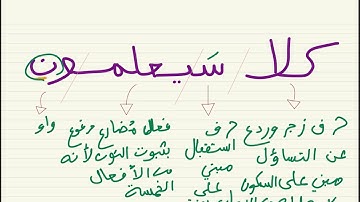 كلا سَيعلمون
حرف زجر وردع حرف فعل مضارع مرفوع واو
عن التساؤل استقبال بثبوت النون لأنه
مبني على السكون مبني على من الأفعال
الخمسة